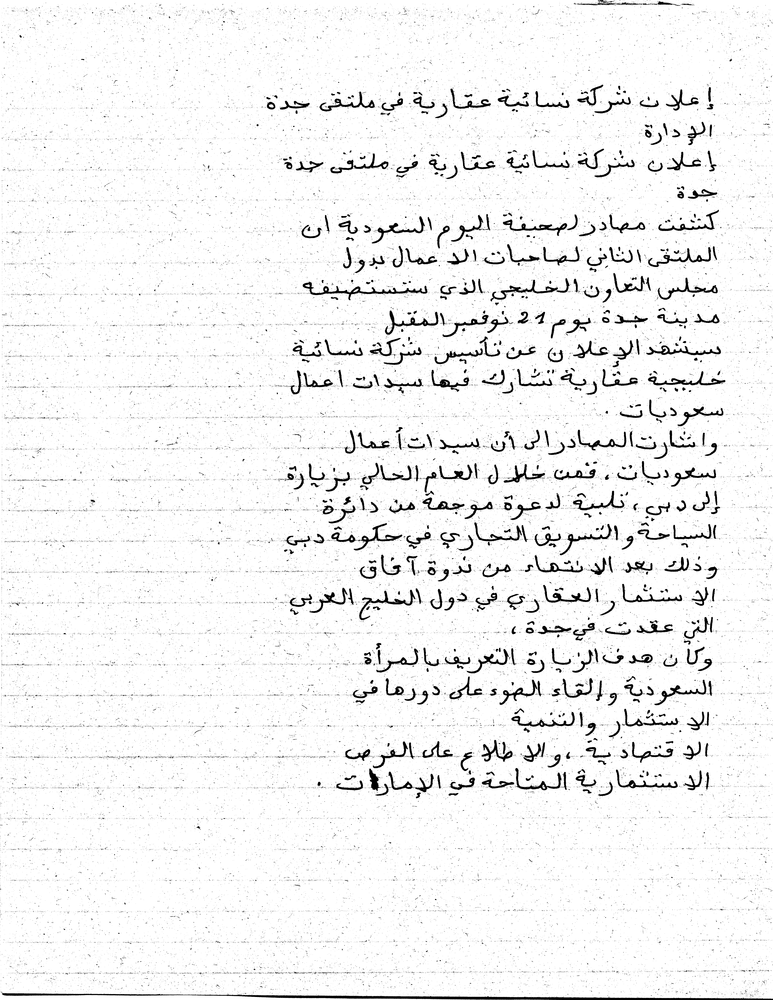 إعلان شركة نسائية عقارية في ملتقى جدة
الإدارة
إعلان شركة نسائية عقارية في ملتقى جدة
جدة
كشفت مصادر لصحيفة اليوم السعودية ان
الملتقى الثاني لصاحبات الاعمال بدول
مجلس التعاون الخليجي الذي ستستضيفه
مدينة جدة يوم 21 نوفمبر المقبل
سيشهد الإعلان عن تأسيس شركة نسائية
خليجية عقارية تشارك فيها سيدات اعمال
سعوديات .
واشارت المصادر الى أن سيدات أعمال
سعوديات، قمن خلال العام الحالي بزيارة
إلى دبي، تلبية لدعوة موجهة من دائرة
السياحة والتسويق التجاري في حكومة دبي
وذلك بعد الانتهاء من ندوة آفاق
الاستثمار العقاري في دول الخليج العربي
التي عقدت في جدة،
وكان هدف الزيارة التعريف بالمرأة
السعودية وإلقاء الضوء على دورها في
الاستثمار والتنمية
الاقتصادية، والاطلاع على الفرص
الاستثمارية المتاحة في الإمارات .